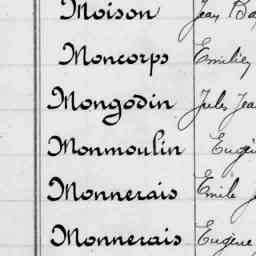 Moison Jean Ba
Moncorps Emilien
Mongodin Jules Jea
Monmoulin Eugè
Monnerais Emile J
Monnerais Eugène